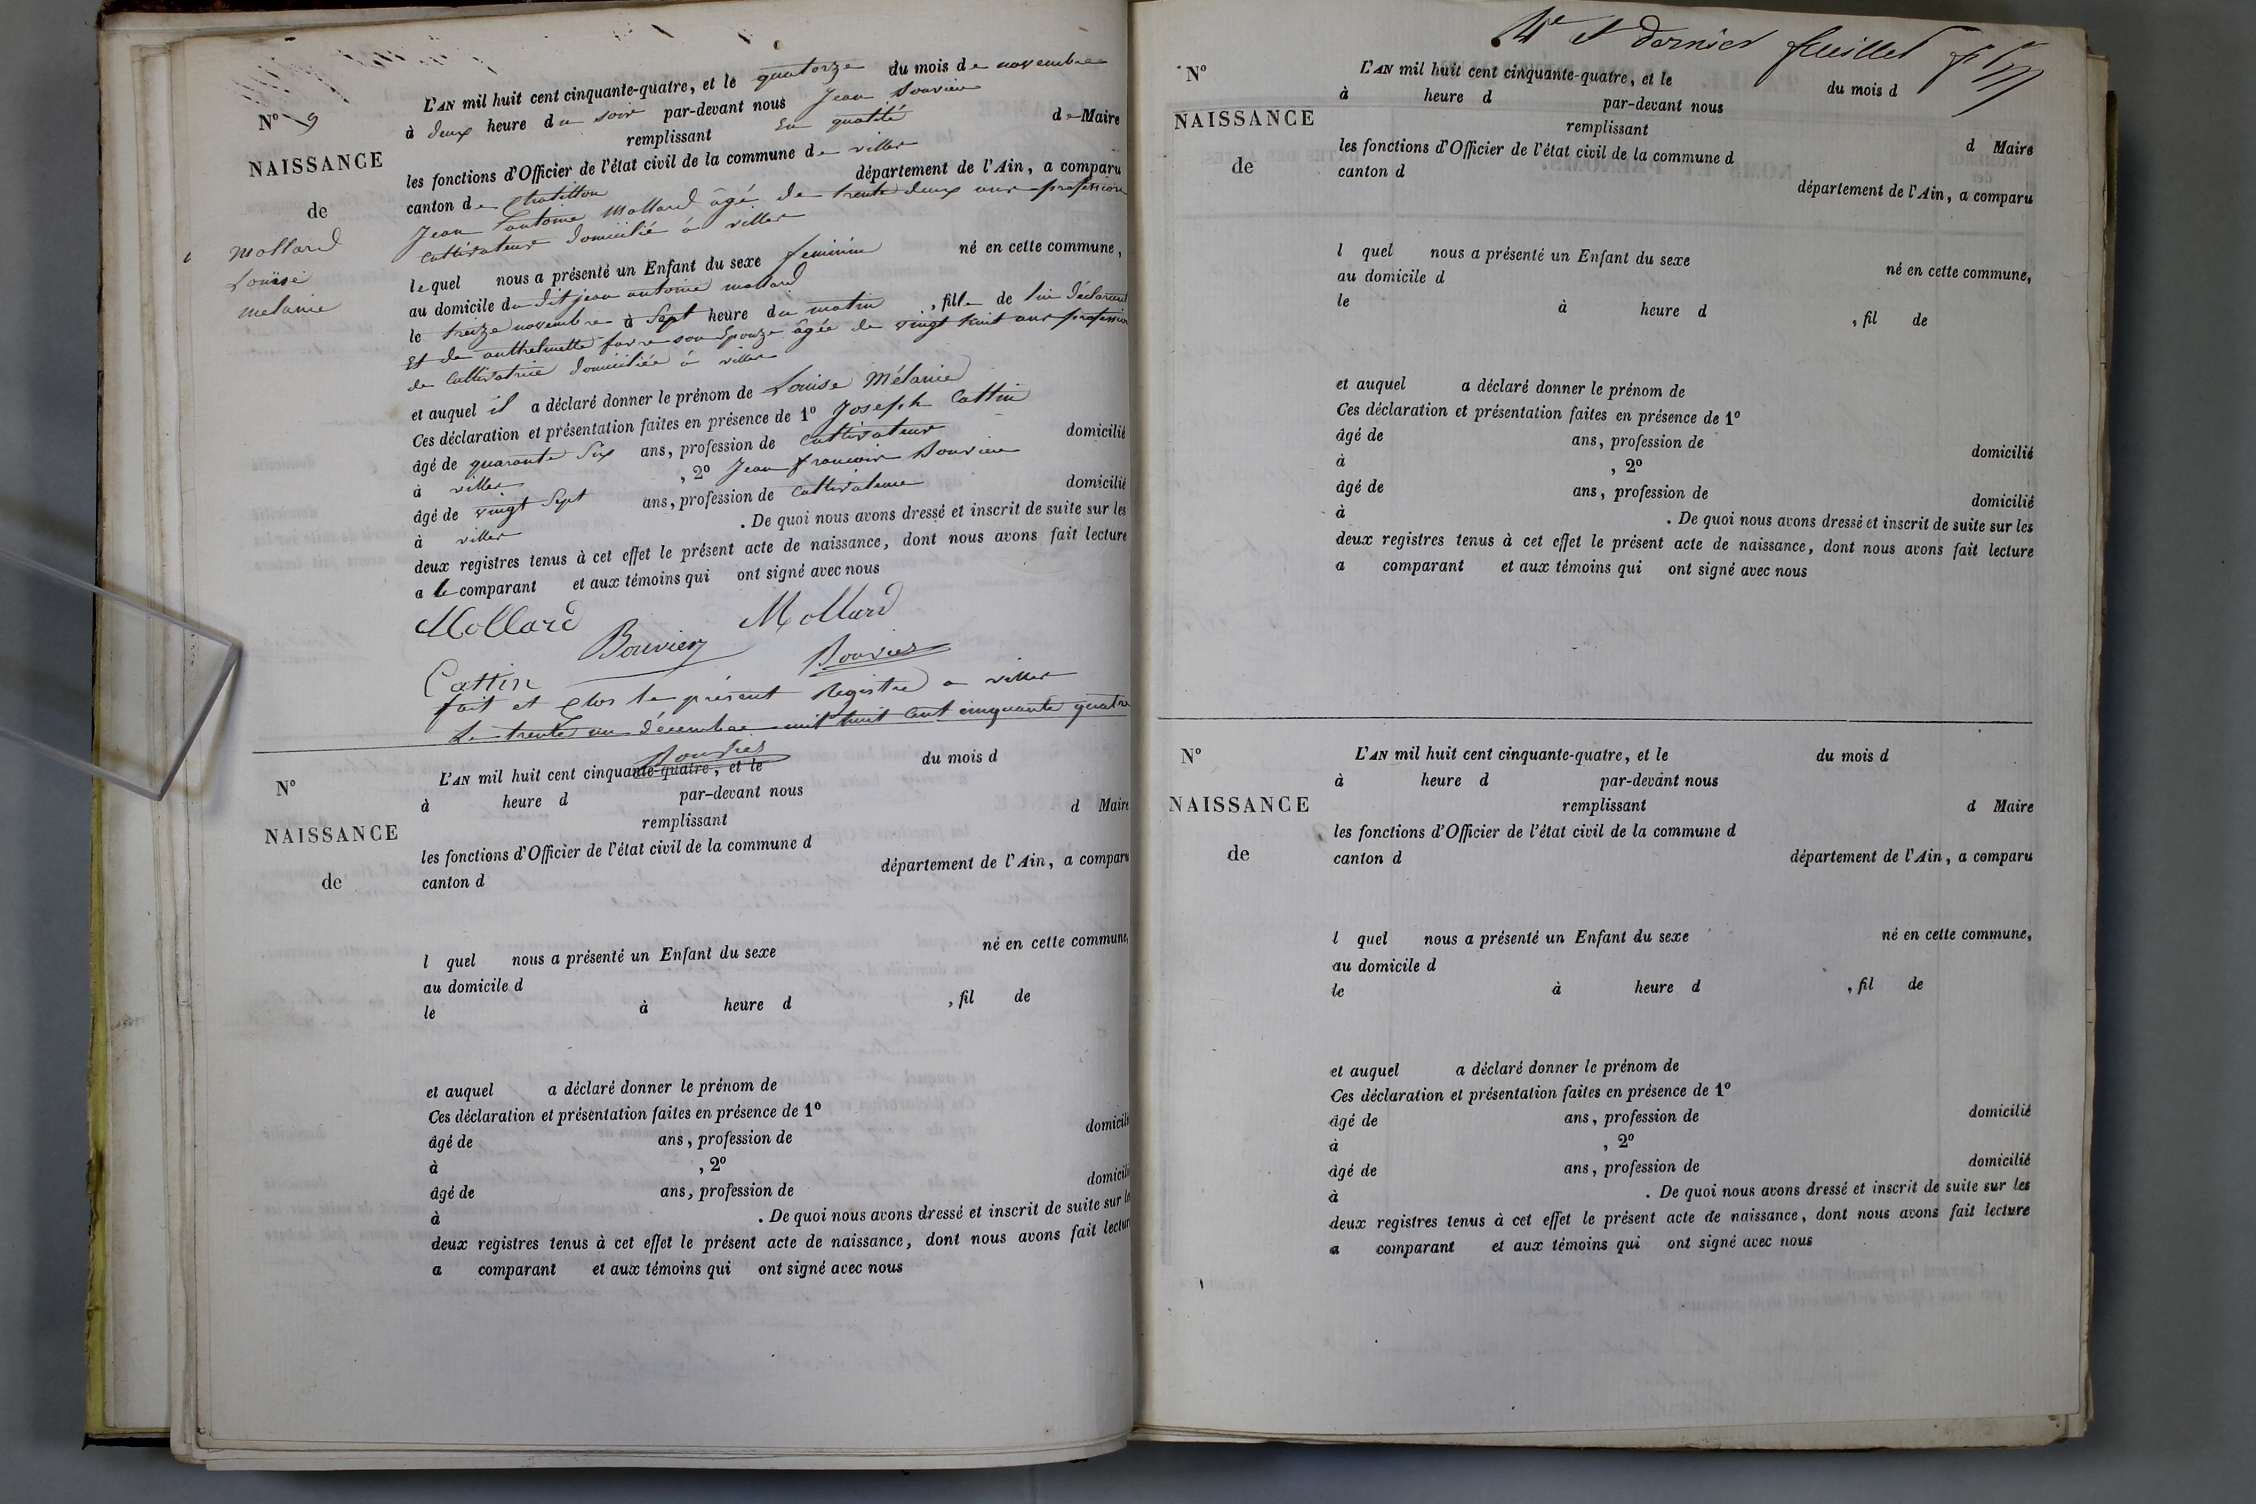 N° 9
NAISSANCE
de
Mollard
Louise
melanie
L'AN mil huit cent cinquante-quatre, et le quatorze du mois de novembre
à deux heure du soir par-devant nous Jean Bouvier
remplissant En qualité de Maire
les fonctions d'Officier de l'état civil de la commune de villes
canton de Chatillon département de l'Ain, a comparu
Jean antoine Mollard âgé de trente deux ans profession
cultivateur domicilié à villes
lequel nous a présenté un Enfant du sexe feminin né en cette commune,
au domicile du dit jean antoine mollard
le treize novembre à Sept heure du matin, fille de lui déclarant
Et de anthelmette favre son Epouze âgée de vingt huit ans profession
de Cultivatrice domiciliée à villes
et auquel il a déclaré donner le prénom de Louise Mélanie
Ces déclaration et présentation faites en présence de 1° Joseph Cattin
âgé de quarante Six ans, profession de cultivateur domicilié
à villes, 2° Jean françois Bouvier
âgé de vingt Sept ans, profession de Cultivateur domicilié
à villes. De quoi nous avons dressé et inscrit de suite sur les
deux registres tenus à cet effet le présent acte de naissance, dont nous avons fait lecture
a le comparant et aux témoins qui ont signé avec nous
Mollard Bouvier Mollard
Cattin Bouvier
fait et Clos le présent Registre a villes
Le trente un décembre mil huit Cent cinquante quatre
Bouvier
N°
NAISSANCE
de
L'AN mil huit cent cinquante-quatre, et le du mois d
à heure d par-devant nous
remplissant d Maire
les fonctions d'Officier de l'état civil de la commune d
canton d département de l'Ain, a comparu
l quel nous a présenté un Enfant du sexe né en cette commune,
au domicile d
le à heure d , fil de
et auquel a déclaré donner le prénom de
Ces déclaration et présentation faites en présence de 1°
âgé de ans, profession de domicilié
à , 2°
âgé de ans, profession de domicilié
à . De quoi nous avons dressé et inscrit de suite sur les
deux registres tenus à cet effet le présent acte de naissance, dont nous avons fait lecture
a comparant et aux témoins qui ont signé avec nous
4e et dernier feuillet
N°
NAISSANCE
de
L'AN mil huit cent cinquante-quatre, et le du mois d
à heure d par-devant nous
remplissant d Maire
les fonctions d'Officier de l'état civil de la commune d
canton d département de l'Ain, a comparu
l quel nous a présenté un Enfant du sexe né en cette commune,
au domicile d
le à heure d , fil de
et auquel a déclaré donner le prénom de
Ces déclaration et présentation faites en présence de 1°
âgé de ans, profession de domicilié
à , 2°
âgé de ans, profession de domicilié
à . De quoi nous avons dressé et inscrit de suite sur les
deux registres tenus à cet effet le présent acte de naissance, dont nous avons fait lecture
a comparant et aux témoins qui ont signé avec nous
N°
NAISSANCE
de
L'AN mil huit cent cinquante-quatre, et le du mois d
à heure d par-devant nous
remplissant d Maire
les fonctions d'Officier de l'état civil de la commune d
canton d département de l'Ain, a comparu
l quel nous a présenté un Enfant du sexe né en cette commune,
au domicile d
le à heure d , fil de
et auquel a déclaré donner le prénom de
Ces déclaration et présentation faites en présence de 1°
âgé de ans, profession de domicilié
à , 2°
âgé de ans, profession de domicilié
à . De quoi nous avons dressé et inscrit de suite sur les
deux registres tenus à cet effet le présent acte de naissance, dont nous avons fait lecture
a comparant et aux témoins qui ont signé avec nous